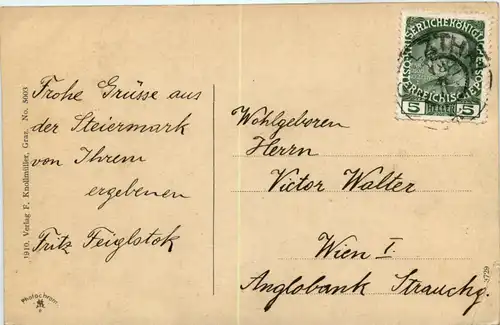 Frohe Grüsse aus
der Steiermark
von Ihrem
ergebenen
Fritz Feiglstok
Wohlgeboren
Herrn
Victor Walter
Wien I.
Anglobank Strauchg.
1910. Verlag F. Knollmüller, Graz. No. 5003
Photochrom
3729
5 5